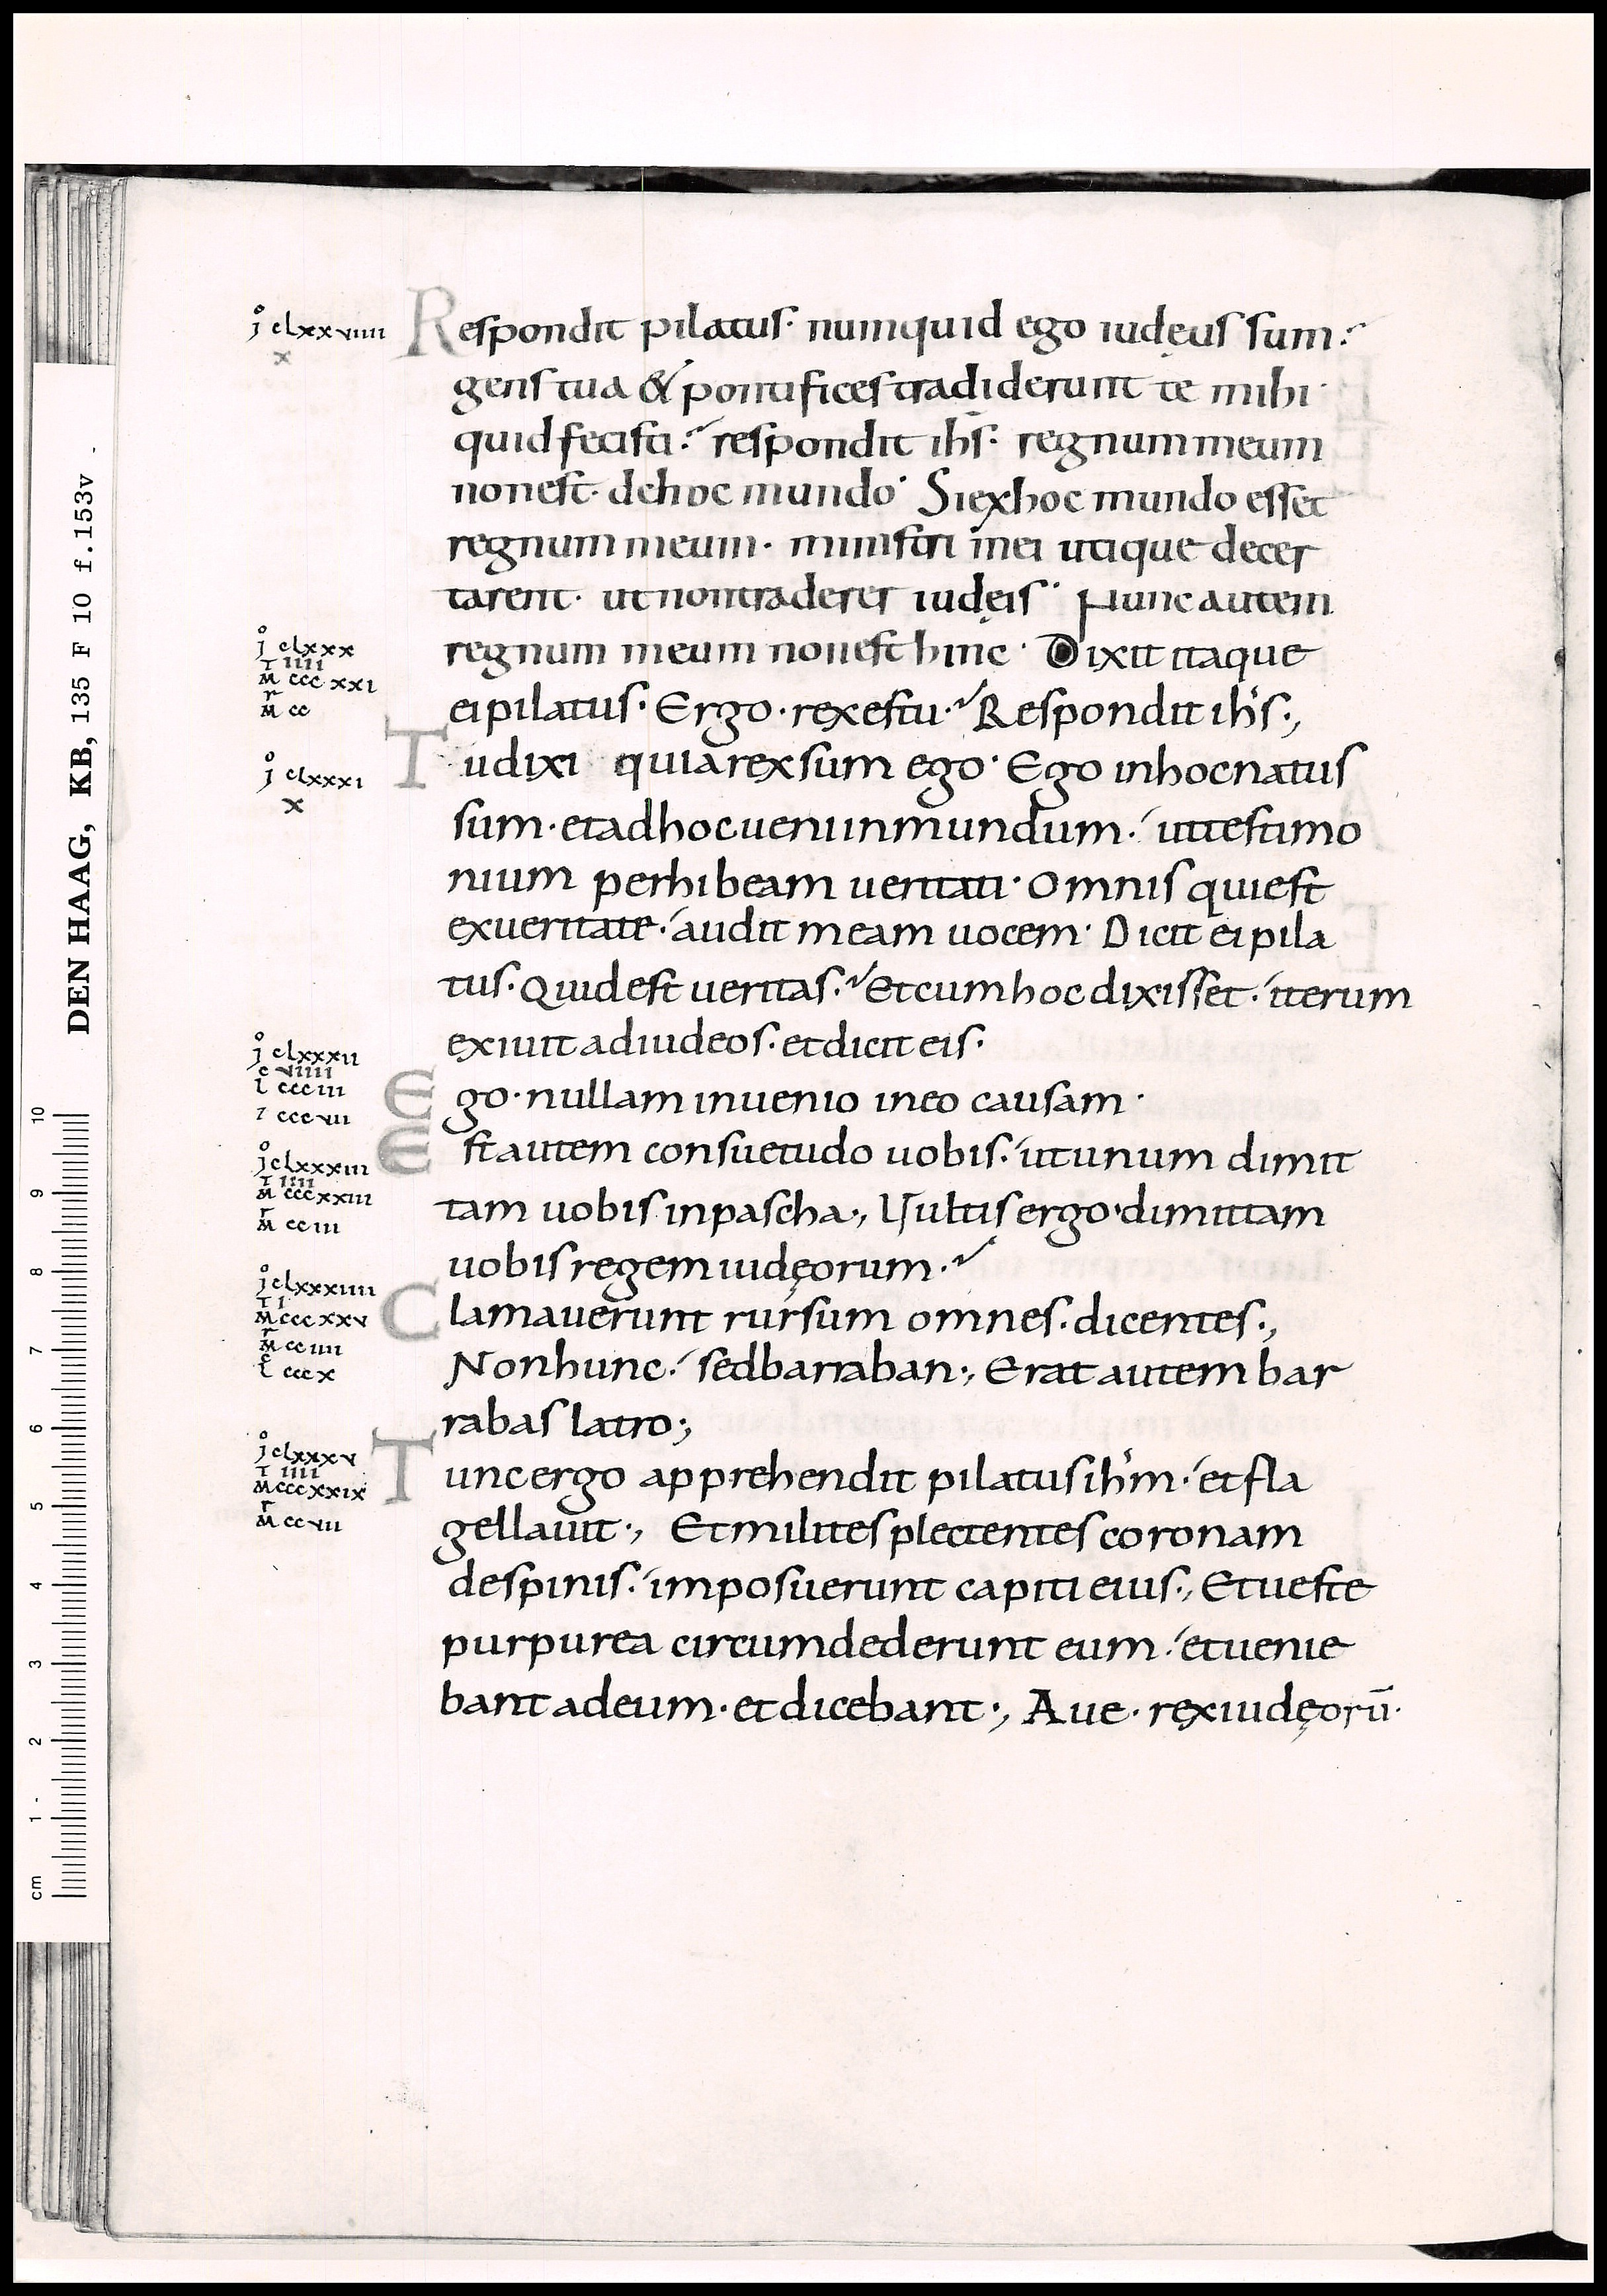 DEN HAAG, KB, 135 F 10 f.153v
10
9
8
7
6
5
4
3
2
1
cm
jº clxxviiii
x
Respondit pilatus· numquid ego iudęus sum·
gens tua & pontifices tradiderunt te mihi·
quid fecisti· respondit ihs̄· regnum meum
non est· de hoc mundo· Si ex hoc mundo esset
regnum meum· ministri mei utique decer
tarent· ut non traderer iudęis· Nunc autem
jº clxxx
T iiii
M cccxxi
mr cc
regnum meum non est hinc· Dixit itaque
ei pilatus· Ergo· rex es tu· Respondit ihs̄·,
jº clxxxi
x
Tu dixi quia rex sum ego· Ego in hoc natus
sum· et ad hoc ueni in mundum· ut testimo
nium perhibeam ueritati· Omnis qui est
ex ueritate· audit meam uocem· Dicit ei pila
tus· Quid est ueritas· Et cum hoc dixisset· iterum
exiuit ad iudeos· et dicit eis·
jº clxxxii
c viiii
l ccciii
l cccvii
Ego· nullam inuenio in eo causam·
jº clxxxiii
T iiii
M cccxxiii
mr cciii
Est autem consuetudo uobis· ut unum dimit
tam uobis in pascha·, Uultis ergo· dimittam
uobis regem iudęorum·
jº clxxxiiii
T i
M cccxxv
mr cciiii
l cccx
Clamauerunt rursum omnes· dicentes·,
Non hunc· sed barraban·, Erat autem bar
rabas latro;
jº clxxxv
T iiii
M cccxxix
mr ccvii
Tunc ergo apprehendit pilatus ihm̄· et fla
gellauit·, Et milites plectentes coronam
de spinis· imposuerunt capiti eius·, Et ueste
purpurea circumdederunt eum· et uenie
bant ad eum· et dicebant·, Aue· rex iudęorū·